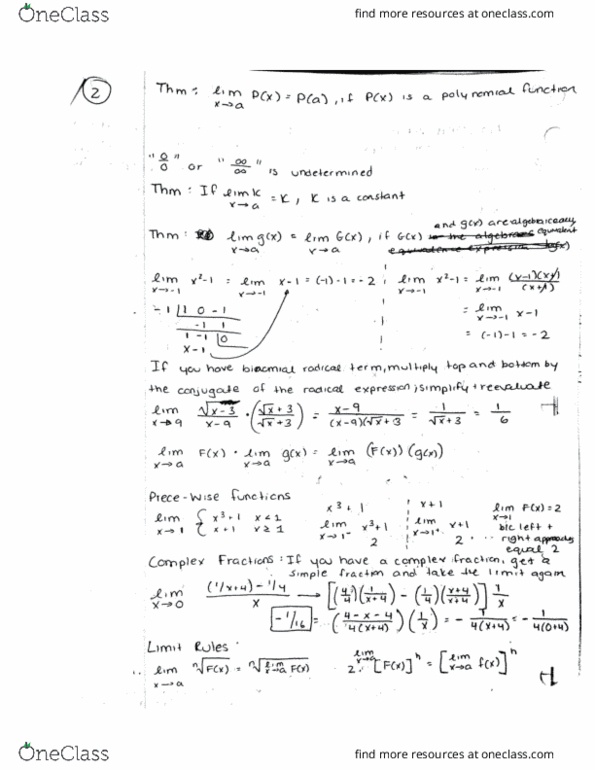 OneClass
find more resources at oneclass.com
2
Thm: lim x→a P(x) = P(a), if P(x) is a polynomial function
"0/0" or "∞/∞" is undetermined
Thm: If lim x→a K = K, K is a constant
and g(x) are algebraically
Thm: lim x→a g(x) = lim x→a G(x), if G(x) equivalent
lim x→-1 x²-1 = lim x→-1 x-1 = (-1)-1 = -2 ; lim x→-1 x²-1 = lim x→-1 (x-1)(x+1)/(x+1)
-1 | 1 0 -1
= lim x→-1 x-1
-1 1
1 -1 | 0
= (-1)-1 = -2
x-1
If you have binomial radical term, multiply top and bottom by
the conjugate of the radical expression; simplify + reevaluate
lim x→9 √x-3/x-9 · (√x+3/√x+3) = x-9/(x-9)(√x+3) = 1/√x+3 = 1/6
lim x→a F(x) · lim x→a g(x) = lim x→a (F(x))(g(x))
Piece-wise functions
x³+1 x+1 lim x→1 F(x)=2
lim x→1 { x³+1 x<1 lim x→1⁻ x³+1 lim x→1⁺ x+1 b/c left +
x+1 x≥1 2 2 right approaches
equal 2
Complex Fractions: If you have a complex fraction, get a
simple fraction and take the limit again
lim x→0 (1/x+4)-1/4 / x → [(4/4)(1/x+4) - (1/4)(x+4/x+4)] 1/x
-1/16 = (4-x-4/4(x+4))(1/x) = -1/4(x+4) = -1/4(0+4)
Limit Rules:
lim x→a ⁿ√F(x) = ⁿ√lim x→a F(x) 2. lim x→a [F(x)]ⁿ = [lim x→a f(x)]ⁿ
OneClass
find more resources at oneclass.com